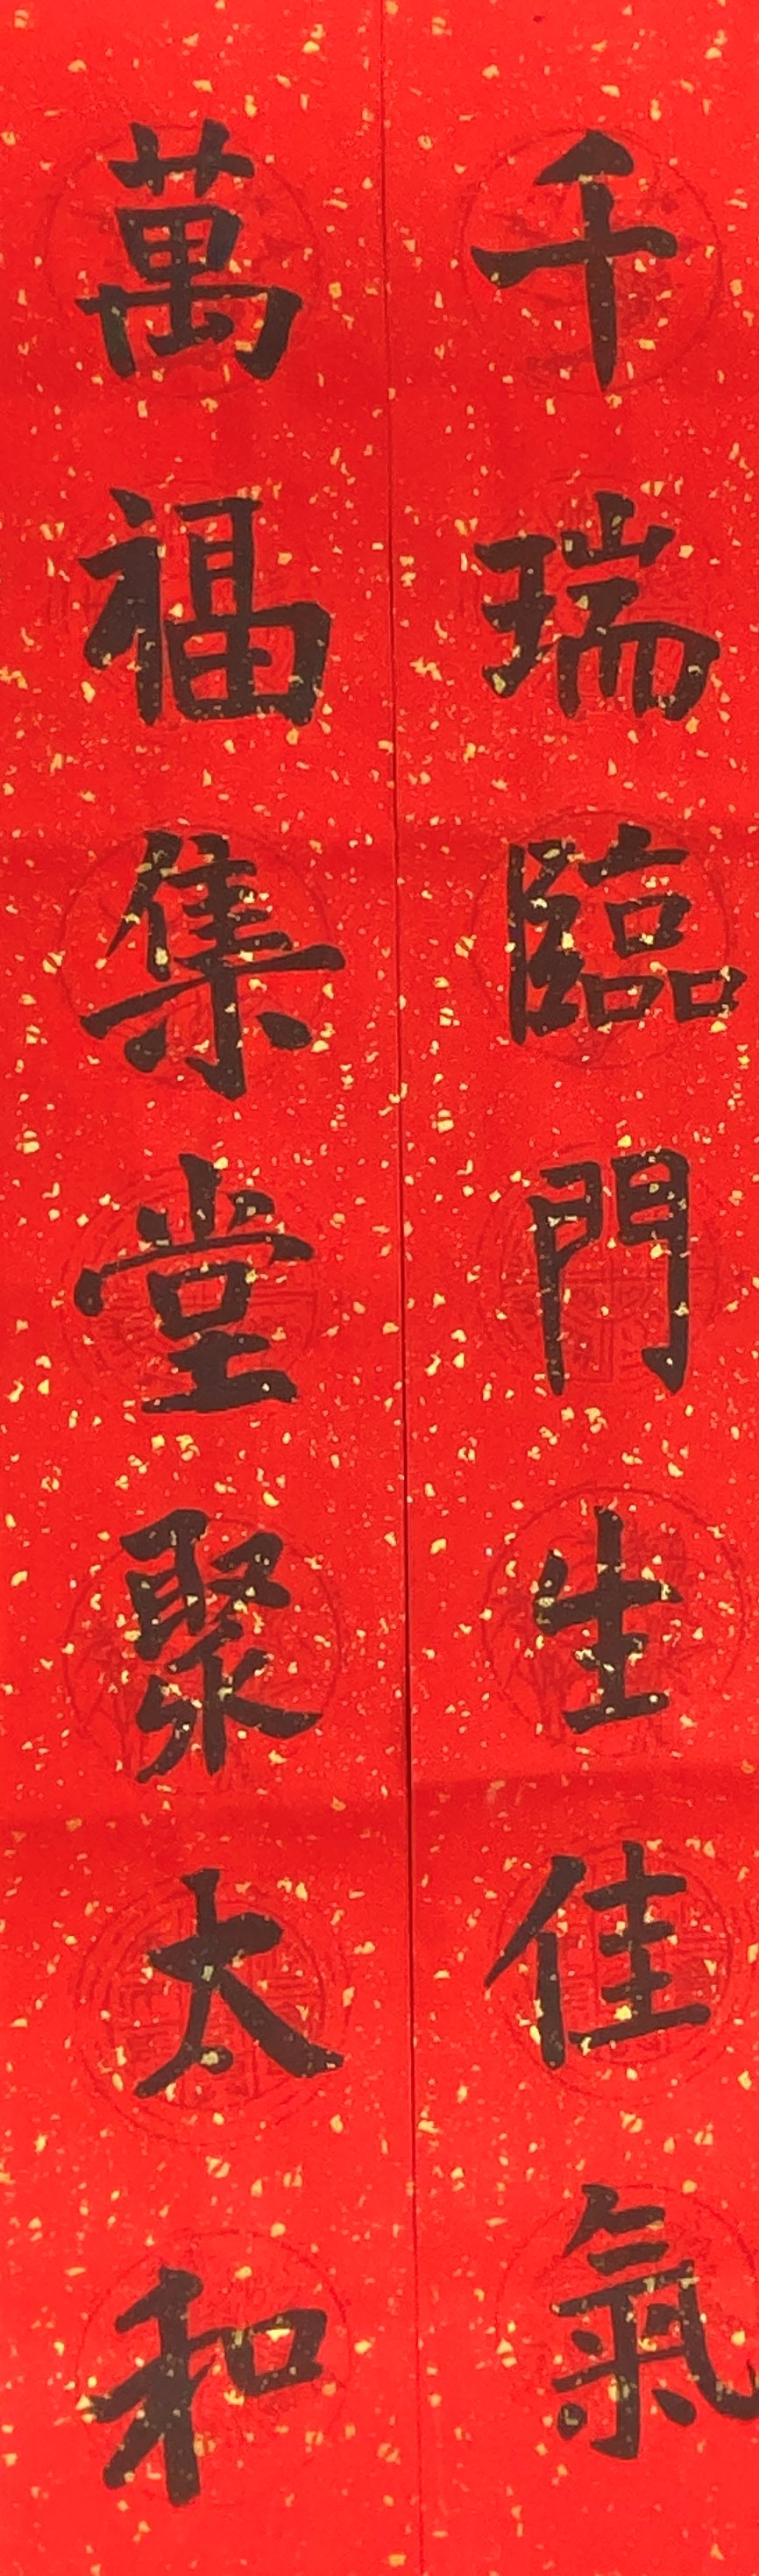 千瑞臨門生佳氣
萬福集堂聚太和